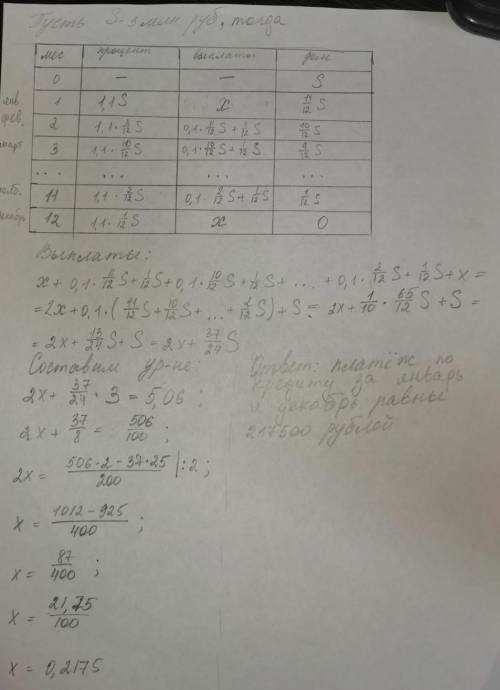 Пусть S-3 млн руб, тогда
мес процент выплаты долг
0 – – S
янв. 1 1,1S x 11/12 S
фев. 2 1,1·11/12 S 0,1·11/12 S+1/12 S 10/12 S
март 3 1,1·10/12 S 0,1·10/12 S+1/12 S 9/12 S
... ... ... ...
нояб. 11 1,1·2/12 S 0,1·2/12 S+1/12 S 1/12 S
декабрь 12 1,1·1/12 S x 0
Выплаты:
x+0,1·11/12 S+1/12 S+0,1·10/12 S+1/12 S+...+0,1·2/12 S+1/12 S+x=
=2x+0,1·(11/12 S+10/12 S+...+2/12 S)+S= 2x+1/10·65/12 S+S=
=2x+13/24 S+S=2x+37/24 S
Составим ур-ие:
2x+37/24·3=5,06;
2x+37/8=506/100;
2x=506·2-37·25/200 |:2;
x=1012-925/400;
x=87/400;
x=21,75/100
x=0,2175
Ответ: платёж по
кредиту за январь
и декабрь равны
217500 рублей